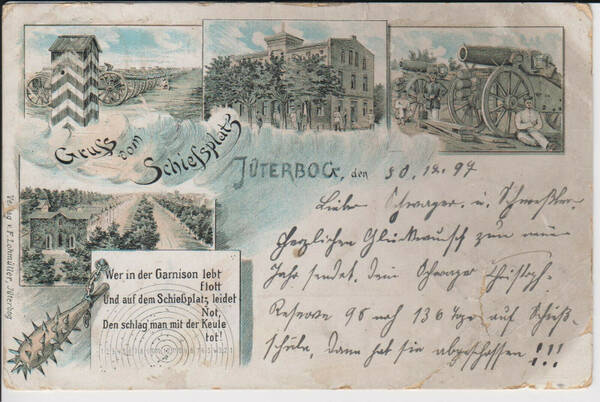 Gruss vom Schießsplatz
JÜTERBOG, den 30.12.97
Liebe Schwager, u. Schwester
Herzlichen Glückwunsch zum neuen
Jahr sendet Dein Schwager Christoph
Reserve 98 noch 136 Tage auf Schieß-
schule, dann hat sie abgeschossen !!!
Wer in der Garnison lebt
flott
Und auf dem Schießplatz leidet
Not,
Den schlag man mit der Keule
tot!
Verlag v. F. Lohmüller, Jüterbog